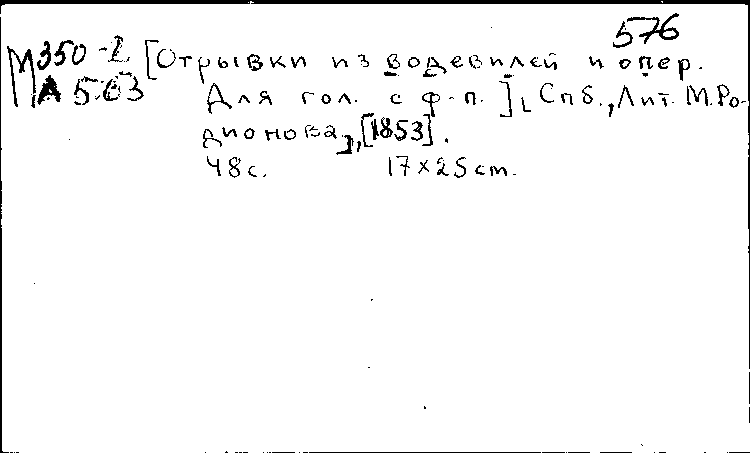 576
М350-2 [Отрывки из водевилей и опер.
А 563 Для гол. с ф.-п.], [Спб., Лит. М. Ро-
дионова], [1853].
48 с. 17×25 cm.